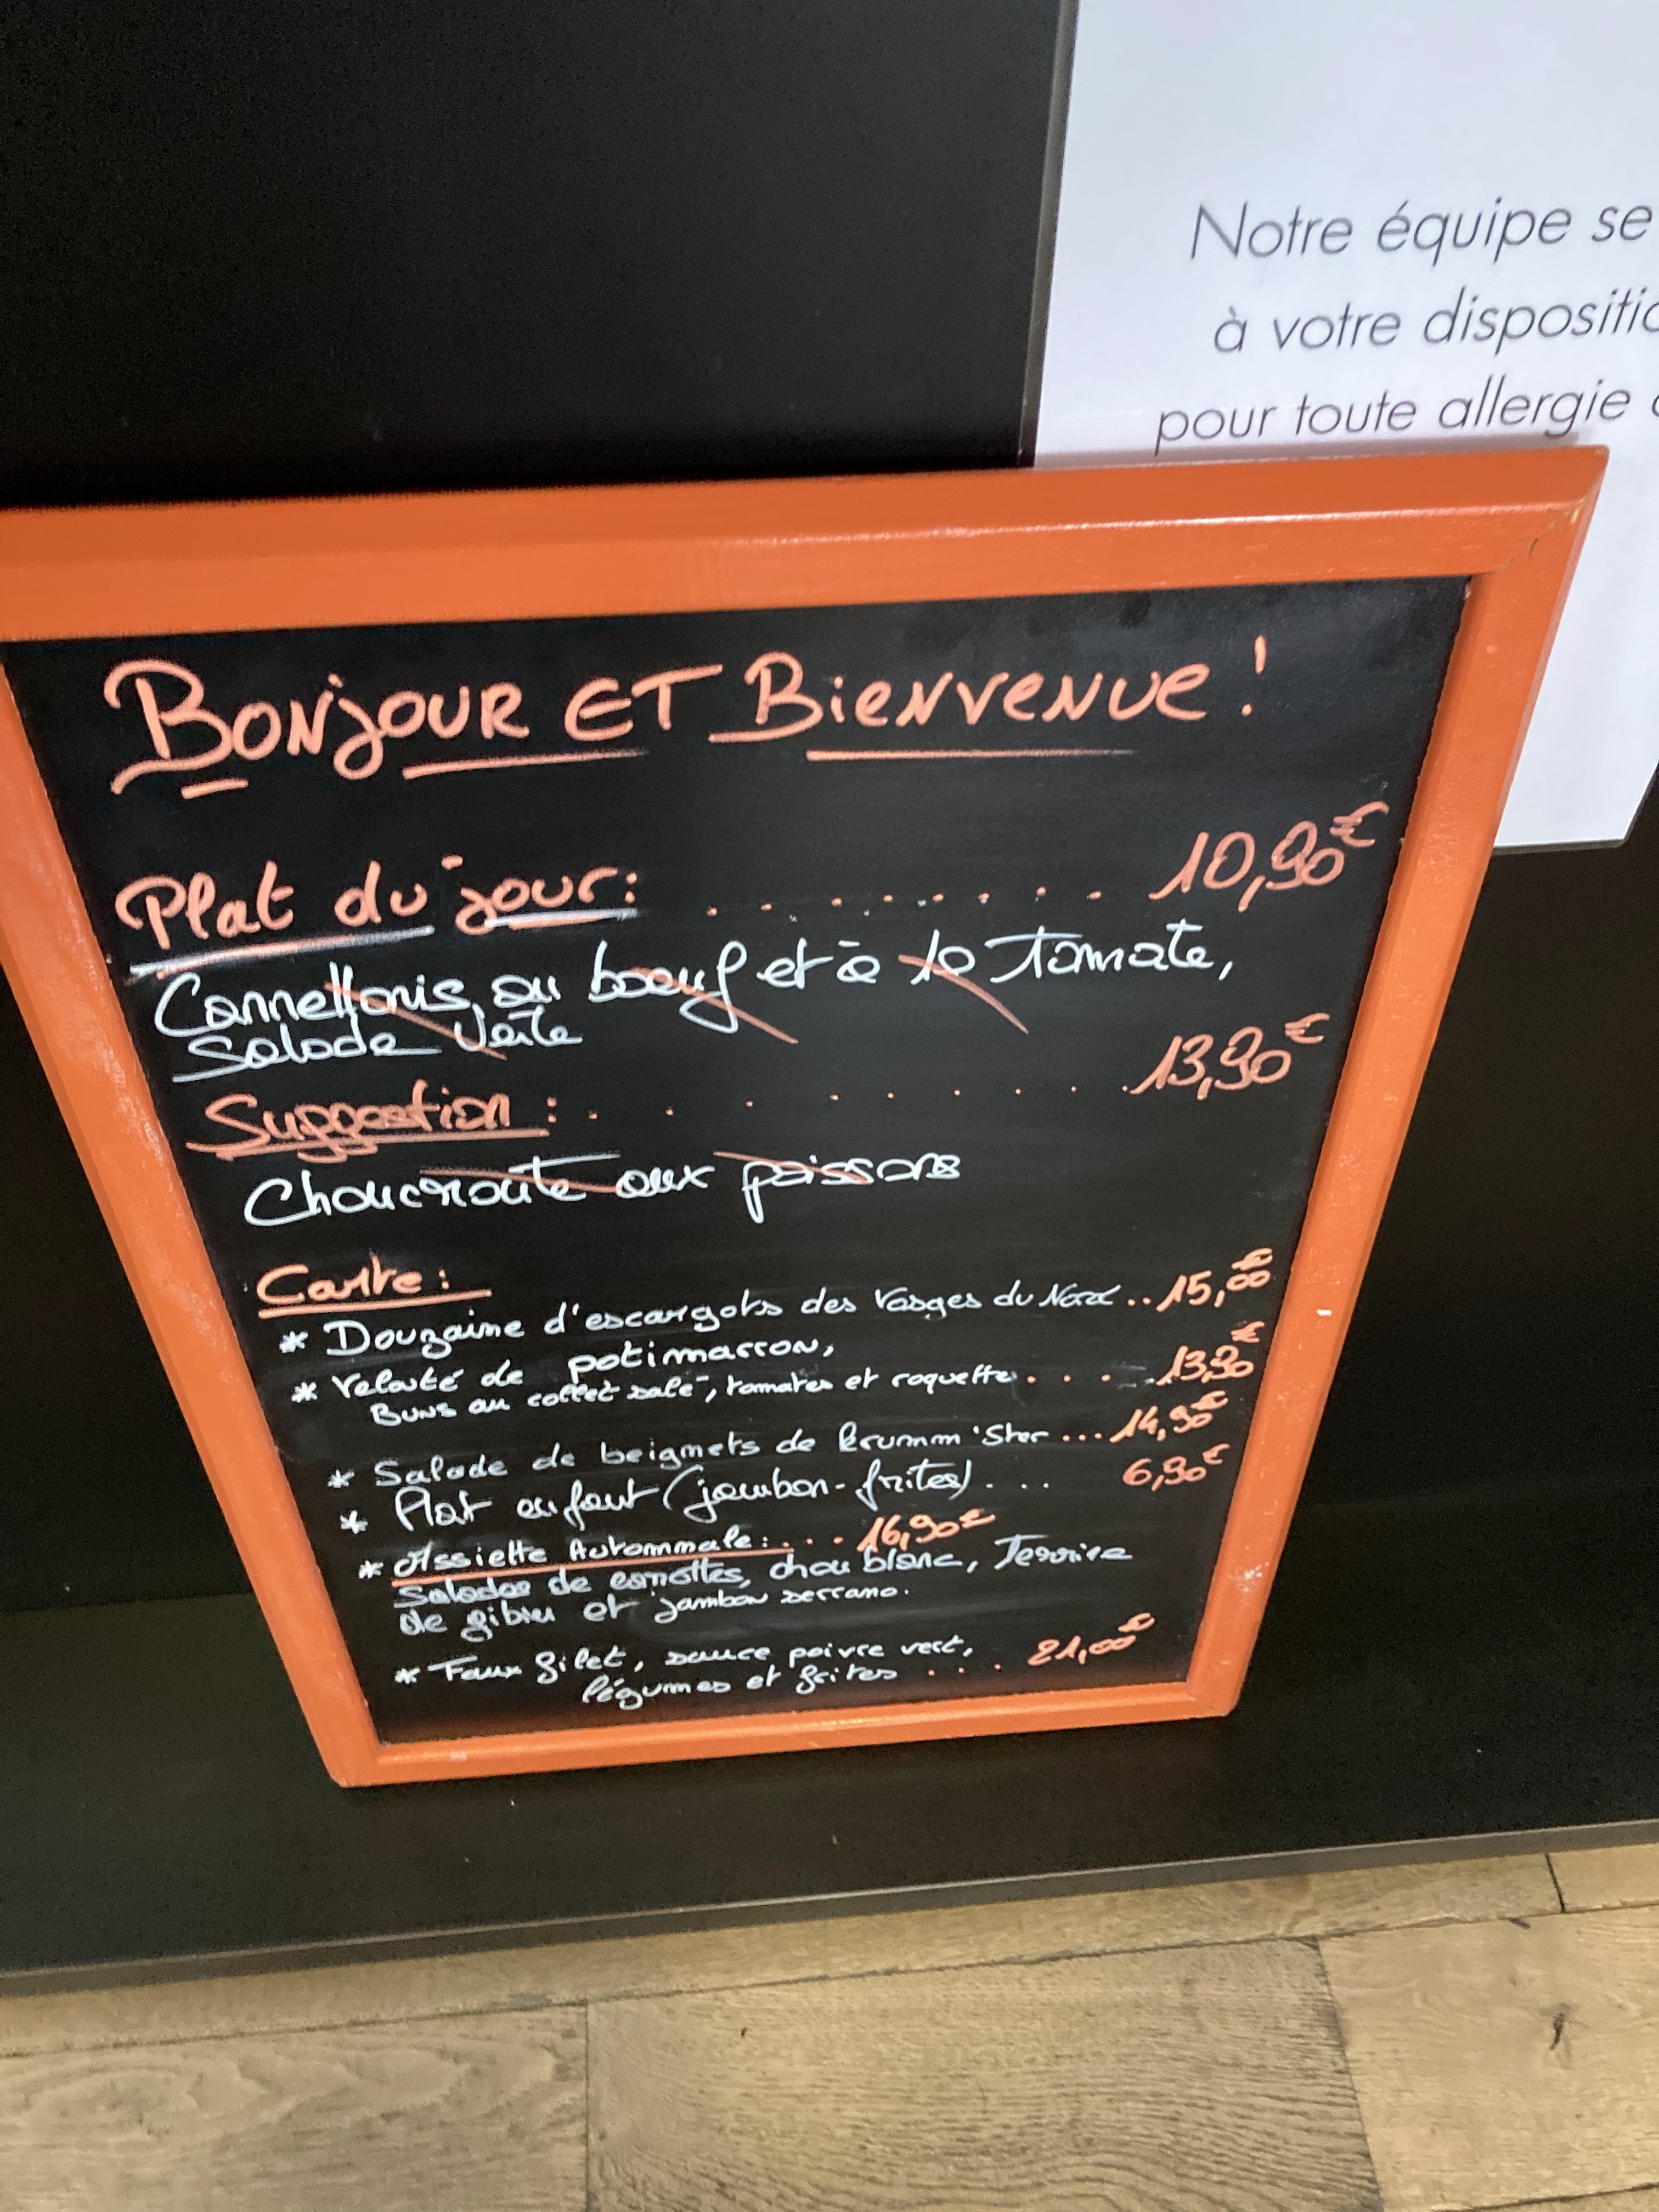 Notre équipe se
à votre dispositio
pour toute allergie
Bonjour ET Bienvenue !
Plat du jour : . . . . . . . . 10,90€
Cannellonis au boeuf et à la Tomate,
Salade Verte
Suggestion : . . . . . . . . 13,90€
Choucroute aux poissons
Carte :
* Douzaine d'escargots des Vosges du Nord .. 15,00€
* Velouté de potimarron,
Buns au collet salé, tomates et roquette . . . . . 13,90€
* Salade de beignets de Brumm'Ster ... 14,90€
* Plat enfant (jambon-frites) . . . 6,90€
* Assiette Automnale : . . . 16,90€
Salades de carottes, chou blanc, Terrine
de gibier et jambon serrano.
* Faux filet, sauce poivre vert,
légumes et frites . . . . 21,00€